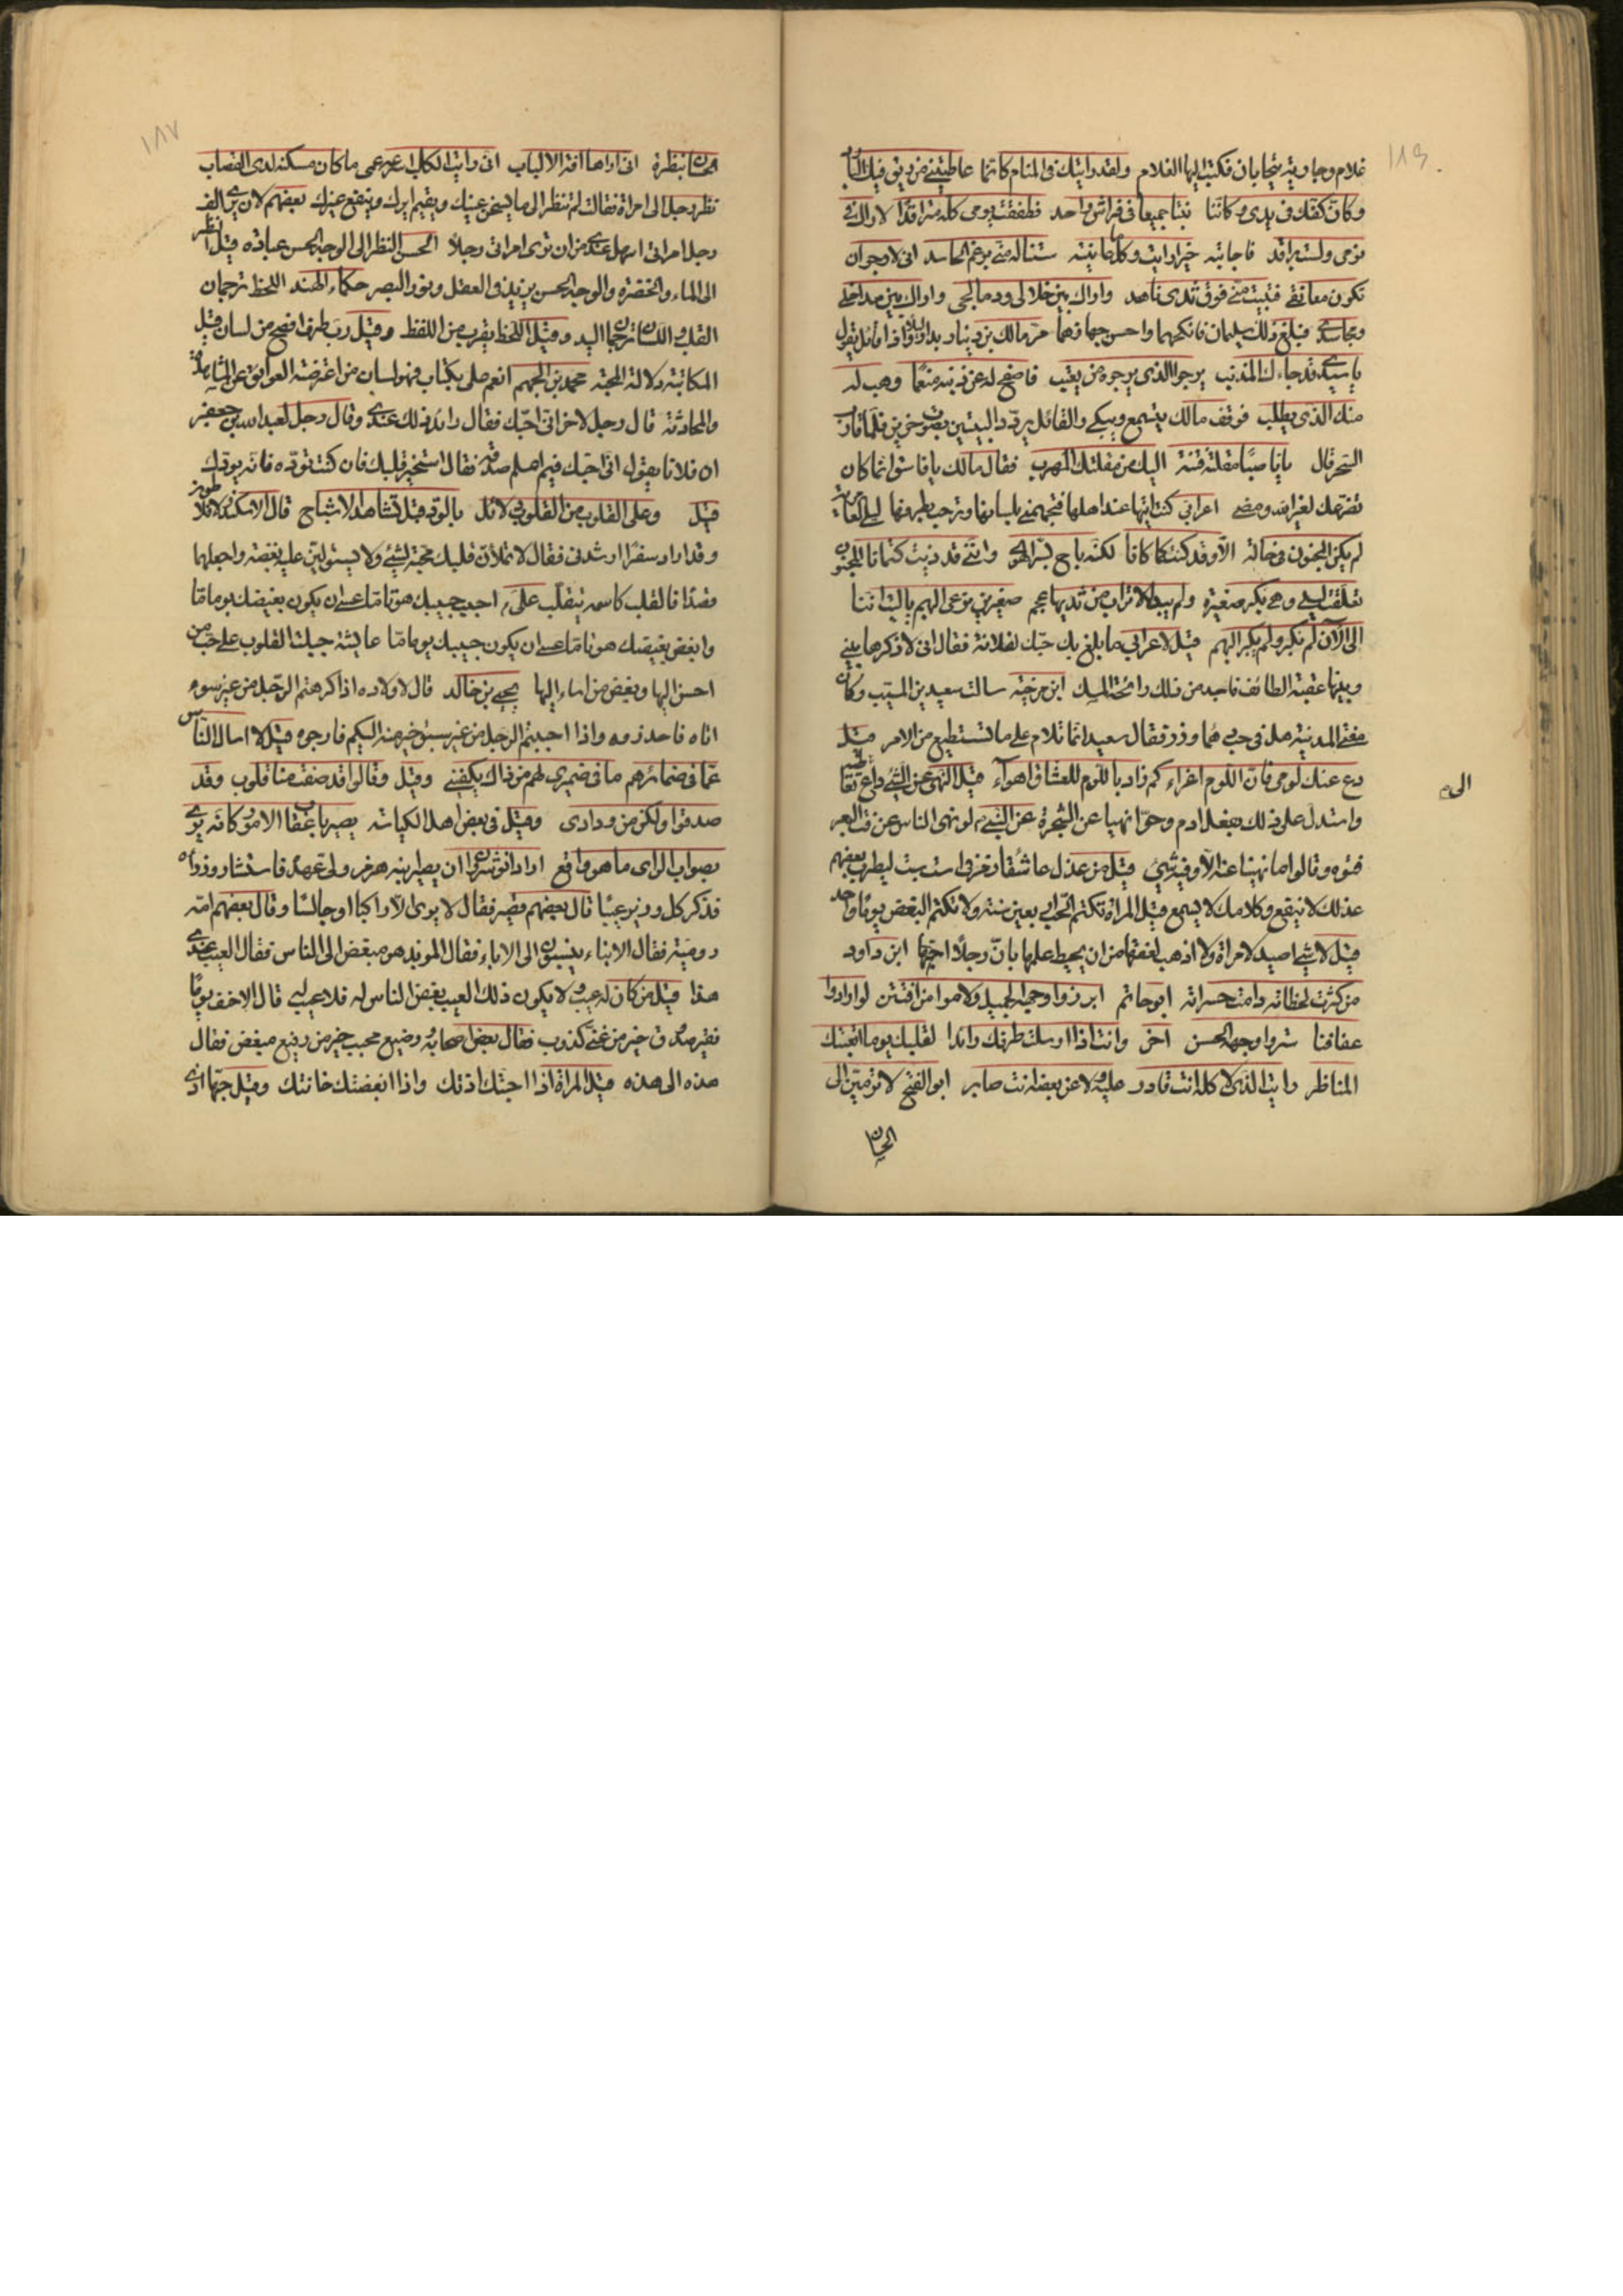 ١١٩
غلام وجارية يتحابان فكتب اليها الغلام ولقد رايتك في المنام كانما عاطيتني من ريق فيك البارد
وكان كفك في يدي وكاننا بتنا جميعا في فراش واحد فطفقت يومي كله متراقدا لاراك في
نومي ولست براقد فاجابته خيرا رايت وكلما عاينته ستناله مني برغم الحاسد اني لارجو ان
تكون معانقي فتبيت مني فوق ثدي ناهد واراك بين خلاخلي ودمالجي واراك بين
فبلغ ذلك سليمان فانكحهما واحسن جهازهما مر مالك بن دينار فاذا قائل يقول
يا سيدي قد جاءك المذنب يرجو الذي يرجوه من يعتب فاصفح له عن ذنبه منعما وهب له
منك الذي يطلب فوقف مالك يتسمع ويبكي والقائل يردد البيتين بصوت حزين فلما قارب
السحر قال يا من مقلته فتنة اليك من مقلتك المهرب فقال مالك يا فاسق انما كان
تضرعك لغير الله ومضى اعرابي كنت اتيها عند اهلها فتجهمني بلسانها وترحب بطرفها ليلى العامرية
لم يكن المجنون في حالة الا وقد كنت كما كانا لكنه باح بسر الهوى وانني قد ذبت كتمانا المجنون
تعلقت ليلى وهي بكر صغيرة ولم يبد للاتراب من ثديها حجم صغيرين نرعى البهم يا ليت اننا
الى الآن لم نكبر ولم يكبر البهم قيل لاعرابي ما بلغ بك حبك لفلانة فقال اني لاذكرها وبيني
وبينها عقبة الطائف فاجد من ذلك رائحة المسك ابن مرخية سالت سعيد بن المسيب وكان
مفتي المدينة هل في حب دهماء وزر فقال سعيد انما تلام على ما تستطيع من الامر قيل
دع عنك لومي فان اللوم اغراء كم زاد باللوم للعشاق اهواء قيل النهي عن الشيء داع
واستدل على ذلك بفعل ادم وحوا نهيا عن الشجرة عن النبي لو نهى الناس عن فت البعر
فتوه وقالوا ما نهينا عنه الا وفيه شيء قيل من عذل عاشقا
عذلك لا ينفع وكلامك لا يسمع قيل المراة تكتم الحب اربعين سنة ولا تكتم البغض يوما واحد
قيل لا شيء اصيد لامراة ولا اذهب لعفتها من ان يحيط علمها بان رجلا احبها ابن داود
من كثرت لحظاته دامت حسراته ابو حاتم ابرزوا وجهه الجميل ولاموا من افتتن لو ارادوا
عفافنا ستروا وجهه الحسن آخر وانت اذا ارسلت طرفك رائدا لقلبك يوما اتعبتك
المناظر رايت الذي لا كله انت قادر عليه ولا عن بعضه انت صابر ابو الفتح لا ترمين الى
الحسان
الى
١٨٧
الحسان بنظرة
نظر رجل الى امراة فقالت لم تنظر الى ما يسخن عينك ويقيم ايرك وينفع غيرك بعضهم لان يرى الف
رجل امراتي اسهل عندي من ان ترى امراتي رجلا الحسن النظر الى الوجه الحسن عبادة قيل النظر
الى الماء والخضرة والوجه الحسن يزيد في العقل ونور البصر حكماء الهند اللحظ ترجمان
القلب واللسان ترجمان اليد وقيل اللحظ يقرب من اللفظ وقيل رب طرف افصح من لسان قيل
المكاتبة دلالة المحبة محمد بن الجهم انعم صلني بكتاب فهو لسان من اعترضته العوائق عن المشاهدة
والمحادثة قال رجل لاخر اني احبك فقال رائد ذلك عندي وقال رجل لعبد الله بن جعفر
ان فلانا يقول اني احبك فبم اعلم صدقه فقال استخبر قلبك فان كنت توده فانه يودك
قيل وعلى القلوب من القلوب دلائل بالود قبل تشاهد الاشباح قال الاسكندر
وقد اراد سفرا ارشدني فقال لا تملان قلبك محبة لشيء ولا يستولين عليه بغضه واجعلهما
قصدا فالقلب كاسمه يتقلب علي احبب حبيبك هونا ما عسى ان يكون بغيضك يوما ما
وابغض بغيضك هونا ما عسى ان يكون حبيبك يوما ما عائشة جبلت القلوب على حب من
احسن اليها وبغض من اساء اليها يحيى بن خالد قال لاولاده اذا كرهتم الرجل من غير سوء
اتاه فاحذروه واذا احببتم الرجل من غير سبق خير منه اليكم فارجوه قيل لا اسال الناس
عما في ضمائرهم ما في ضميري لهم من ذاك يكفيني وقيل وقالوا قد صفت منا قلوب وقد
صدقوا ولكن من ودادي وقيل في بعض اهل الكياسة بصير باعقاب الامور كانه يرى
بصواب الراي ما هو واقع اراد انوشروان ان يصير ابنه هرمز ولي عهد فاستشار وزراءه
فذكر كل وزير عيبا قال بعضهم قصير فقال لا يرى الا راكبا او جالسا وقال بعضهم امه
رومية فقال الابناء ينسبون الى الاباء فقال الموبد هو مبغض الى الناس فقال العيب عندي
هذا قيل من كان له عيب ولا يكون ذلك العيب بغض الناس له فلا عيب قال الاحنف يوما
فقير صدوق خير من غني كذوب فقال بعض اصحابه وضيع محبب خير من رفيع مبغض فقال
هذه الى هذه قيل المراة اذا احبتك اذتك واذا ابغضتك خانتك وقيل حبها اذى